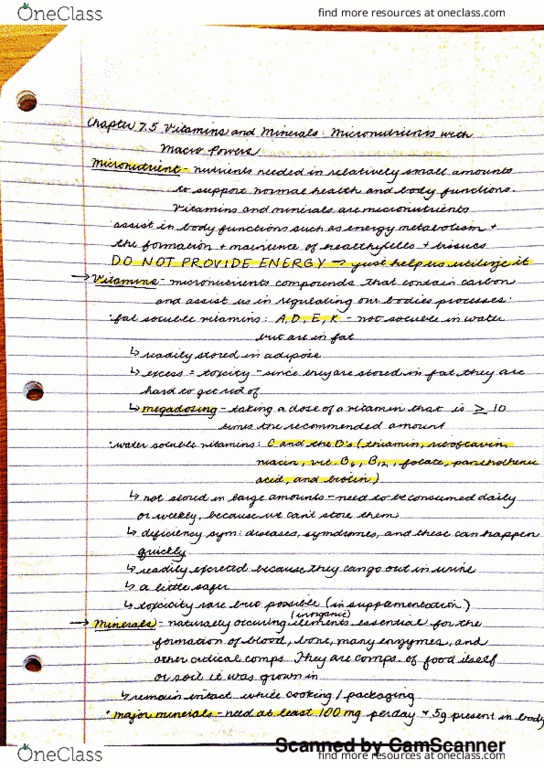 OneClass
find more resources at oneclass.com
Chapter 7.5 Vitamins and Minerals: Micronutrients with
Macro Powers
Micronutrient - nutrients needed in relatively small amounts
to support normal health and body functions.
Vitamins and minerals are micronutrients
assist in body functions such as energy metabolism +
the formation + of healthy cells + tissues
DO NOT PROVIDE ENERGY → just help us utilize it
→ Vitamins - micronutrients compounds that contain carbon
and assist us in regulating our bodies processes.
· fat soluble vitamins: A, D, E, K - not soluble in water
but are in fat
↳ readily stored in adipose
↳ excess = toxicity - since they are stored in fat they are
hard to get rid of
↳ megadosing - taking a dose of a vitamin that is ≥ 10
times the recommended amount
· water soluble vitamins: C and the B's (thiamin, riboflavin,
niacin, vit. B6, B12, folate, pantothenic
acid, and biotin)
↳ not stored in large amounts - need to be consumed daily
or weekly, because we can't store them
↳ deficiency sym: diseases, syndromes, and these can happen
quickly
↳ readily excreted because they can go out in urine
↳ a little safer
↳ toxicity rare but possible (in supplementation)
(inorganic)
→ Minerals - naturally occuring elements essential for the
formation of blood, bone, many enzymes, and
other critical comps. They are comps. of food itself
or soil it was grown in
↳ remain intact while cooking / packaging
· major minerals - need at least 100 mg per day + 5g present in body
Scanned by CamScanner
OneClass
find more resources at oneclass.com